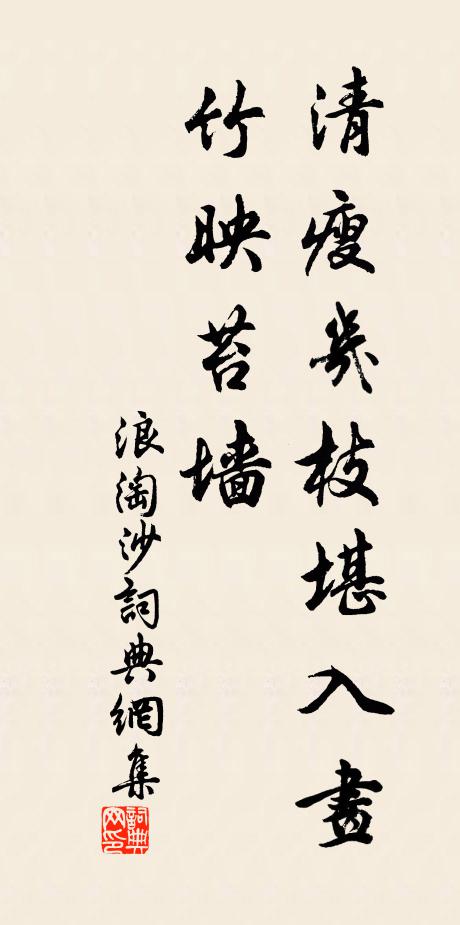 清瘦幾枝堪入畫
竹映苔墙
浪淘沙詞典網集
詞典
网印